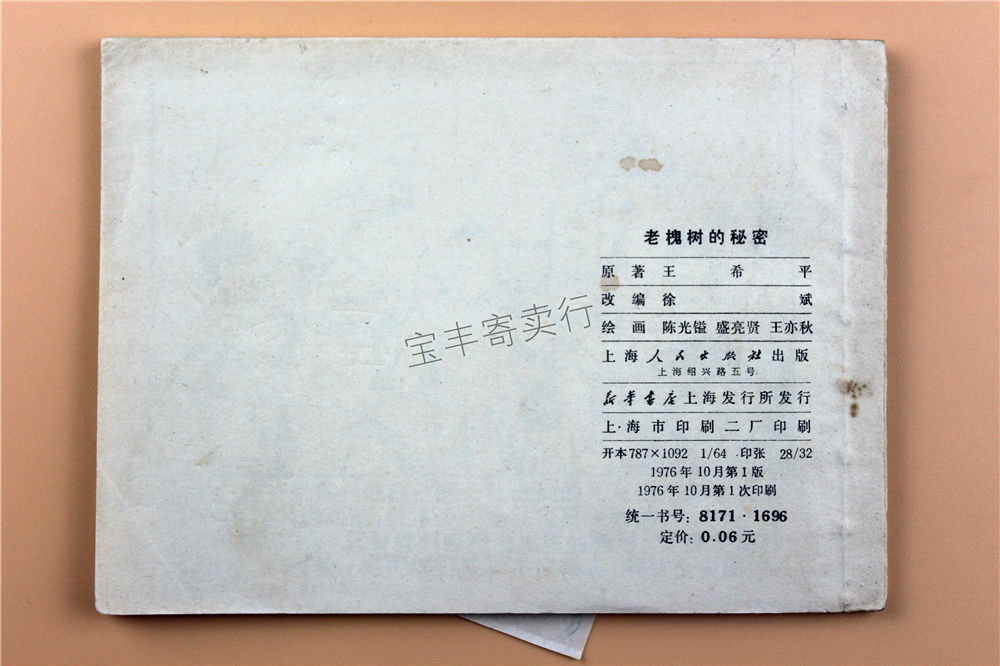 老槐树的秘密
原著王希平
改编徐斌
绘画 陈光镒 盛亮贤 王亦秋
上海人民出版社出版
上海绍兴路五号
新华书店上海发行所发行
上海市印刷二厂印刷
开本787×1092 1/64 印张 28/32
1976年10月第1版
1976年10月第1次印刷
统一书号: 8171·1696
定价: 0.06元
宝丰寄卖行